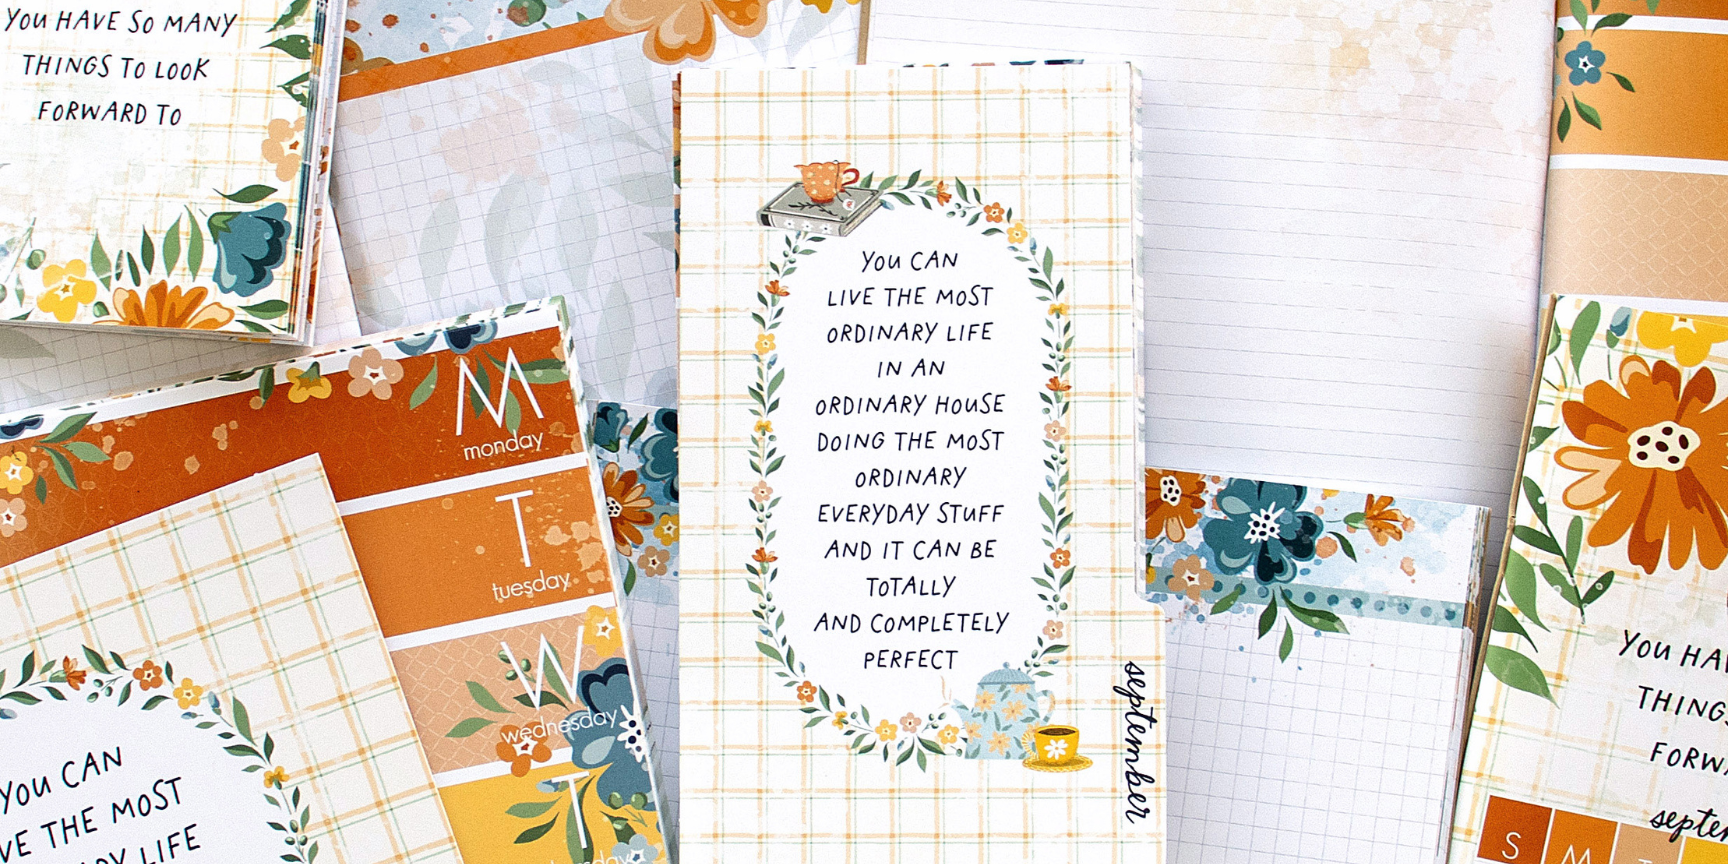 YOU HAVE SO MANY
THINGS TO LOOK
FORWARD TO
M
monday
T
tuesday
W
wednesday
T
YOU CAN
THE MOST
LIFE
YOU CAN
LIVE THE MOST
ORDINARY LIFE
IN AN
ORDINARY HOUSE
DOING THE MOST
ORDINARY
EVERYDAY STUFF
AND IT CAN BE
TOTALLY
AND COMPLETELY
PERFECT
september
YOU
S M T